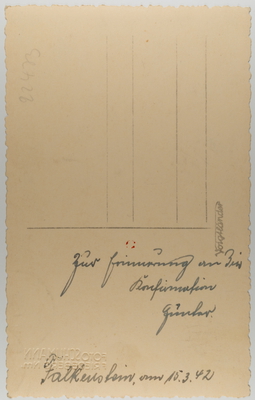 22473
Voigtländer
Zur Erinnerung an die
Konfirmation
Günter.
Falkenstein, am 15.3.42